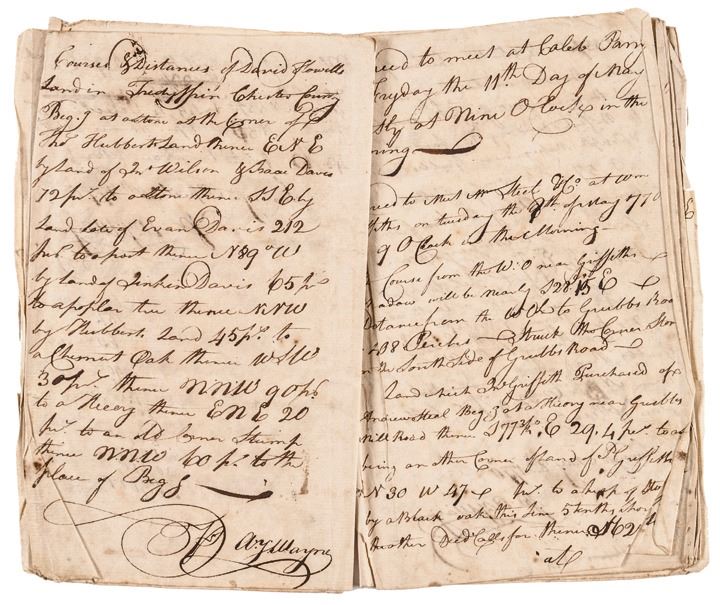 Courses & Distances of David Howells
Land in Tredyffrin Chester County
Beg.g at a stone at the Corner of
Thos Hubberts Land thence E N E
by Land of Jno Wilson & Isaac Davis
72 ps. to a stone thence S S E by
Land late of Evan Davis 212
ps. to a post thence N 89° W
by land of Jenken Davis 65 ps
to a poplar tree thence N N W
by Hubberts Land 45 ps. to
a Chesnut Oak thence W S W
30 ps. thence N N W 90 ps
to a Hicory thence E N E 20
ps. to an old Corner Stump
thence N N W 60 ps to the
place of Beg.g
Ay. Wayne
to meet at Caleb Parry
Fryday the 11th Day of May
at Nine O Clock in the
to Meet Mr Steel & Co at Wm
on tuesday the of May 1770
9 O Clock in the Morning
Course from the W: O near Griffiths
will be nearly S 28 15 E
Distance from the W Ok to Grubbs Road
Perches Struck the Corner Stone
the South side of Grubbs Road
Land which Griffith Purchased of
Andrew Steal Beg.g at a Hicory near Grubbs
Mill Road thence E 29.4 ps. to a
being another Corner of Land of Griffiths
N 30 W 47 ps. to a heap of
by a Black oak this Line 5 tenths Short
another Deed Calls for thence S 62
at